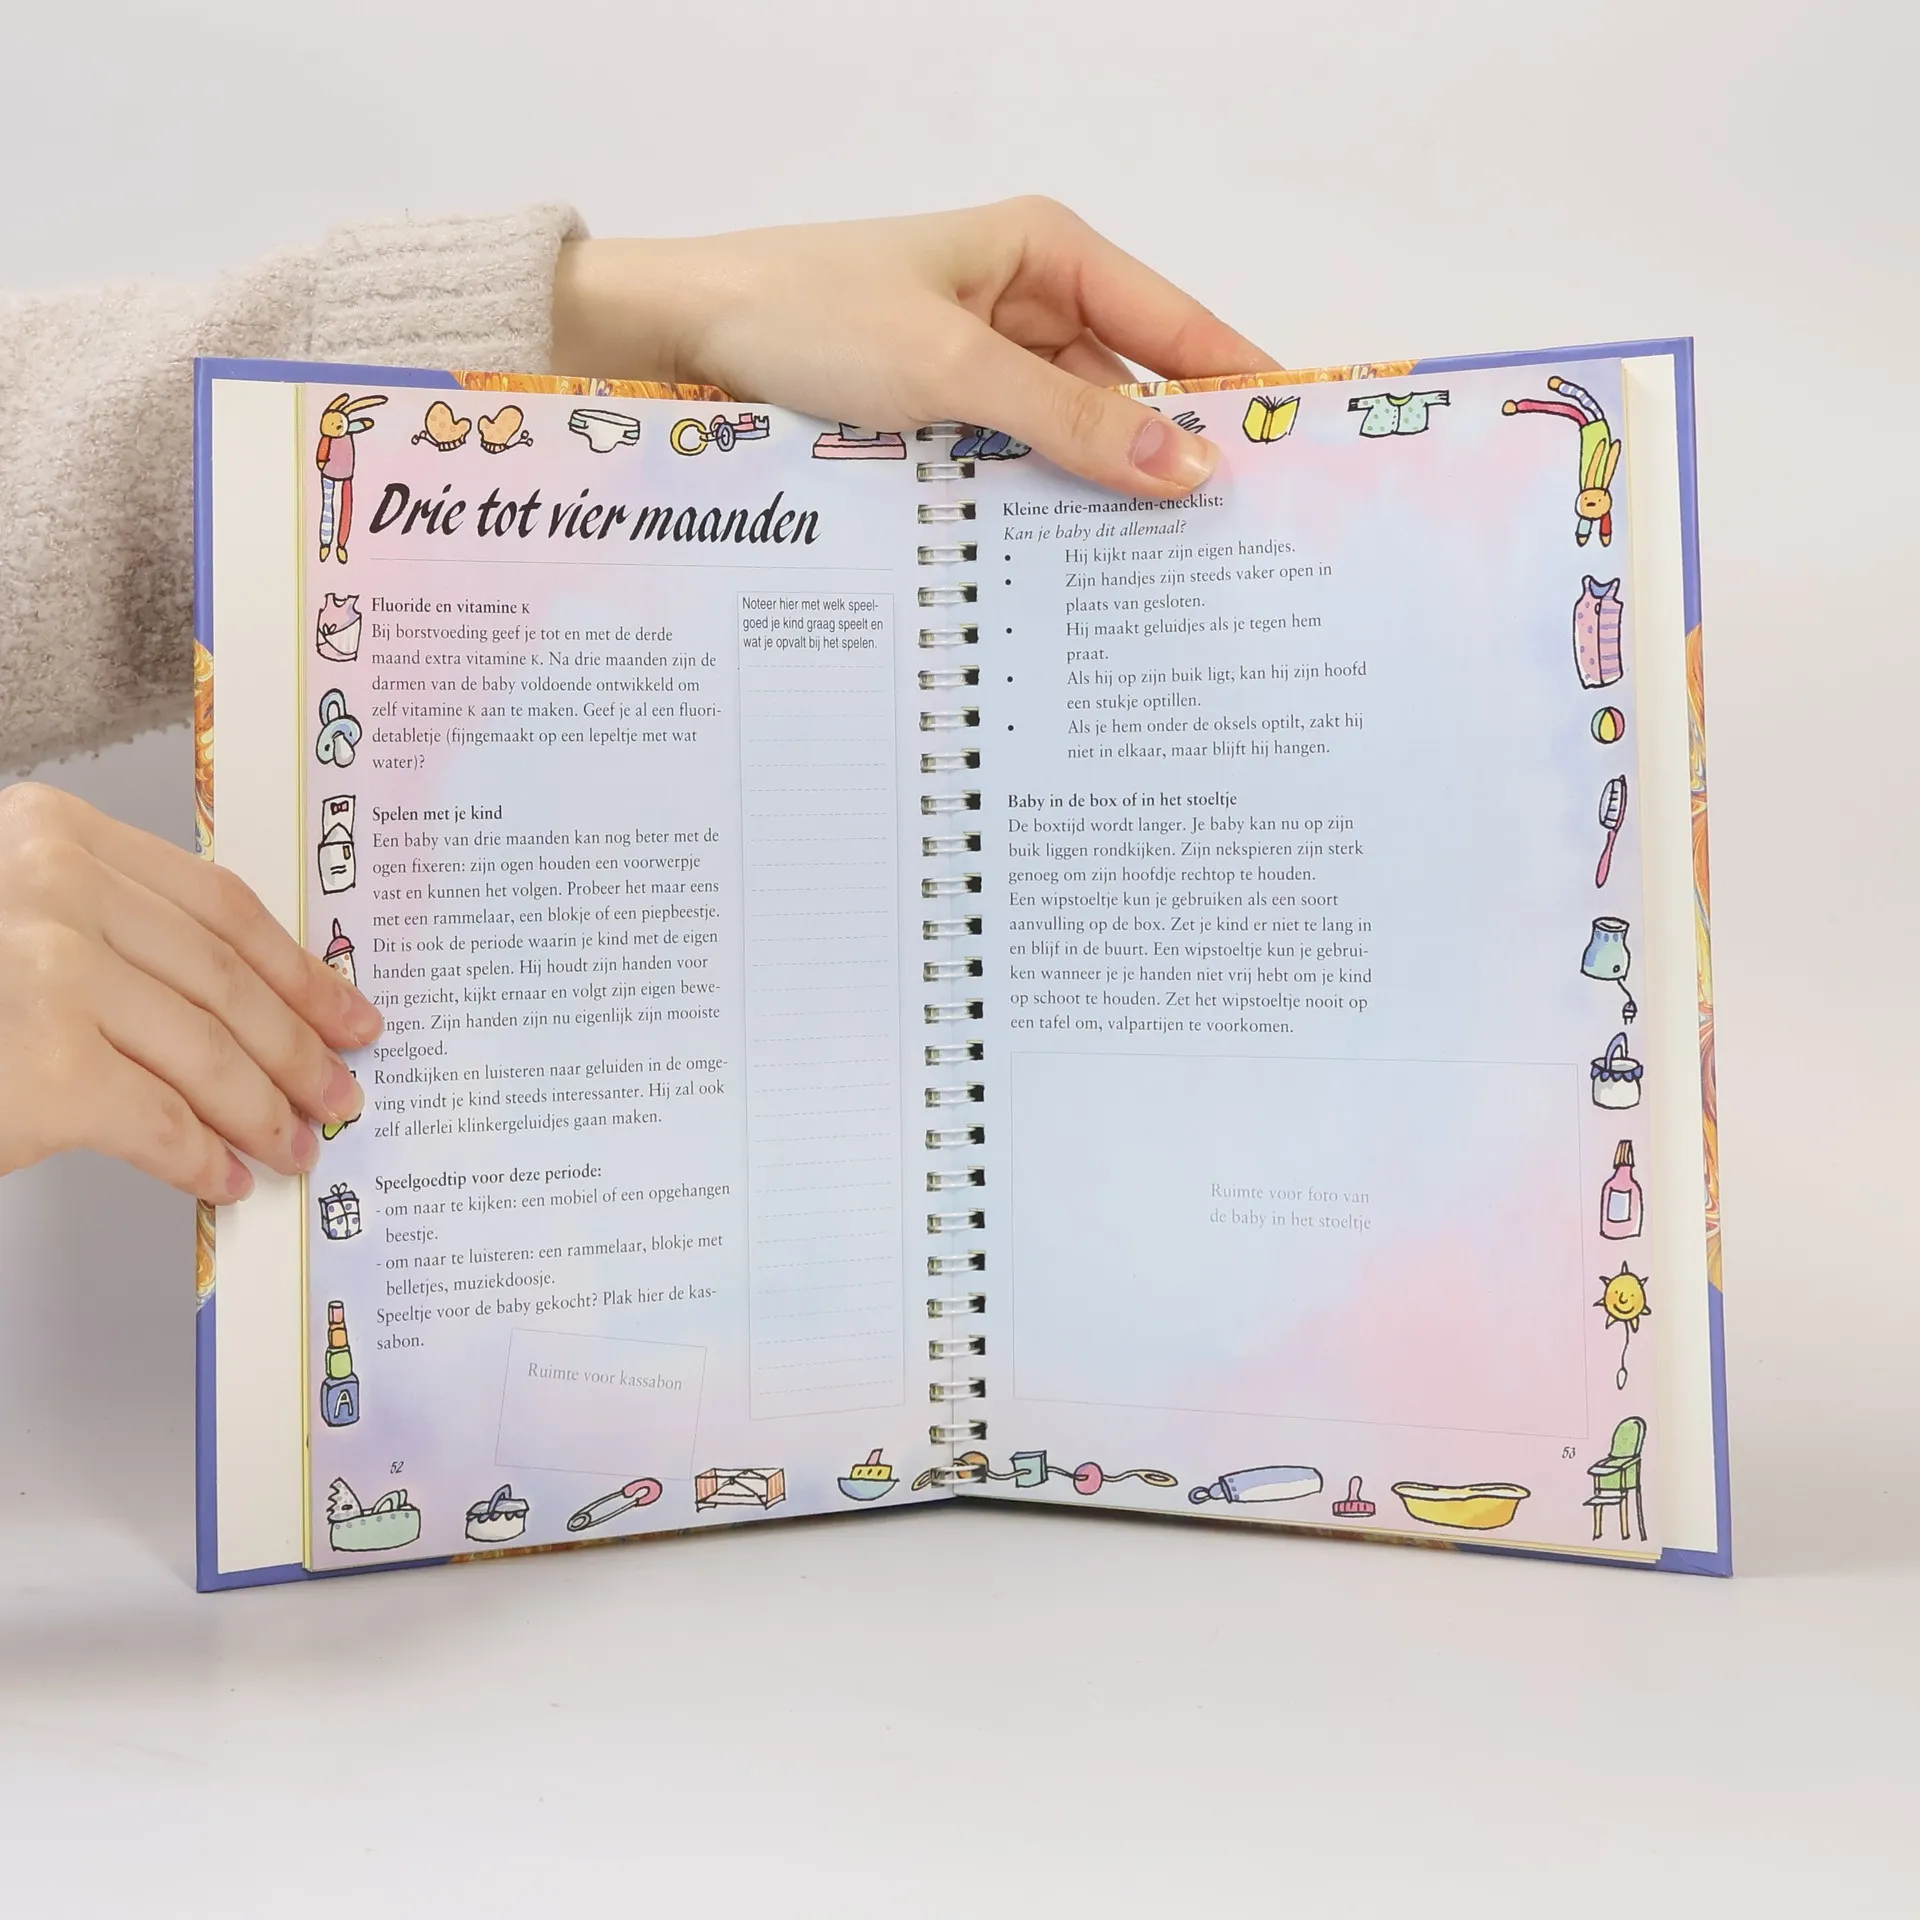 Drie tot vier maanden
Fluoride en vitamine K
Bij borstvoeding geef je tot en met de derde
maand extra vitamine K. Na drie maanden zijn de
darmen van de baby voldoende ontwikkeld om
zelf vitamine K aan te maken. Geef je al een fluori-
detabletje (fijngemaakt op een lepeltje met wat
water)?
Spelen met je kind
Een baby van drie maanden kan nog beter met de
ogen fixeren: zijn ogen houden een voorwerpje
vast en kunnen het volgen. Probeer het maar eens
met een rammelaar, een blokje of een piepbeestje.
Dit is ook de periode waarin je kind met de eigen
handen gaat spelen. Hij houdt zijn handen voor
zijn gezicht, kijkt ernaar en volgt zijn eigen bewe-
ingen. Zijn handen zijn nu eigenlijk zijn mooiste
speelgoed.
Rondkijken en luisteren naar geluiden in de omge-
ving vindt je kind steeds interessanter. Hij zal ook
zelf allerlei klinkergeluidjes gaan maken.
Speelgoedtip voor deze periode:
- om naar te kijken: een mobiel of een opgehangen
beestje.
- om naar te luisteren: een rammelaar, blokje met
belletjes, muziekdoosje.
Speeltje voor de baby gekocht? Plak hier de kas-
sabon.
Ruimte voor kassabon
A
52
Noteer hier met welk speel-
goed je kind graag speelt en
wat je opvalt bij het spelen.
Kleine drie-maanden-checklist:
Kan je baby dit allemaal?
• Hij kijkt naar zijn eigen handjes.
• Zijn handjes zijn steeds vaker open in
plaats van gesloten.
• Hij maakt geluidjes als je tegen hem
praat.
• Als hij op zijn buik ligt, kan hij zijn hoofd
een stukje optillen.
• Als je hem onder de oksels optilt, zakt hij
niet in elkaar, maar blijft hij hangen.
Baby in de box of in het stoeltje
De boxtijd wordt langer. Je baby kan nu op zijn
buik liggen rondkijken. Zijn nekspieren zijn sterk
genoeg om zijn hoofdje rechtop te houden.
Een wipstoeltje kun je gebruiken als een soort
aanvulling op de box. Zet je kind er niet te lang in
en blijf in de buurt. Een wipstoeltje kun je gebrui-
ken wanneer je je handen niet vrij hebt om je kind
op schoot te houden. Zet het wipstoeltje nooit op
een tafel om, valpartijen te voorkomen.
Ruimte voor foto van
de baby in het stoeltje
53